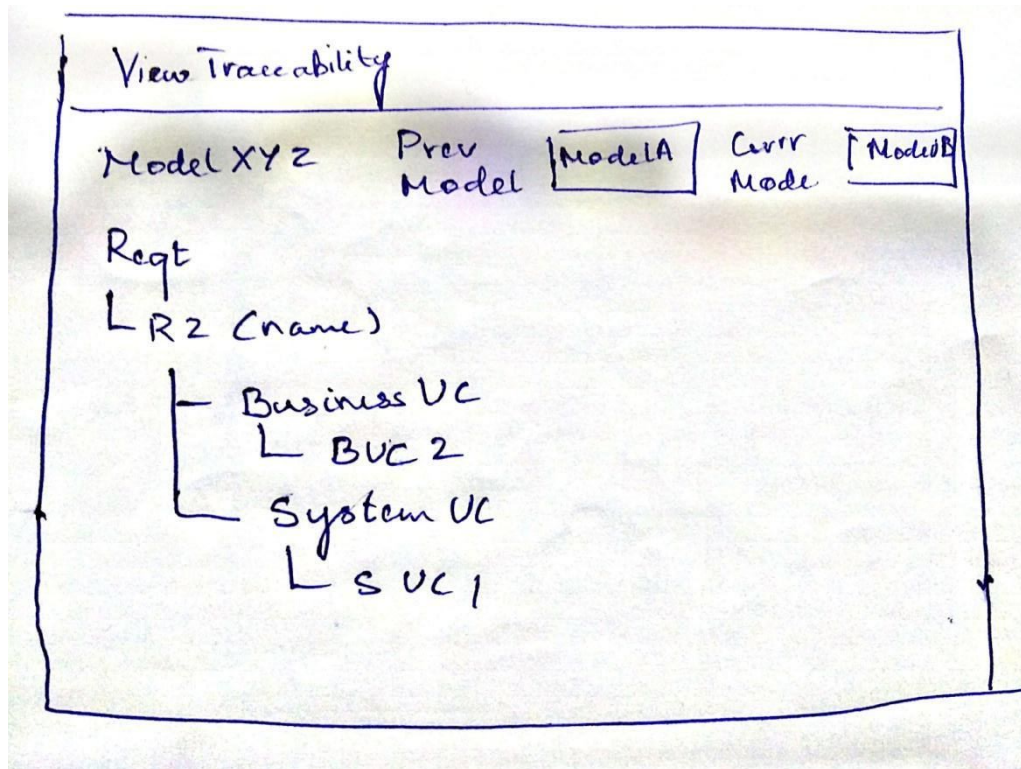 View Traceability
Model XYZ Prev Model ModelA Curr Mode ModelB
Reqt
R2 (name)
Business UC
BUC 2
System UC
S UC 1